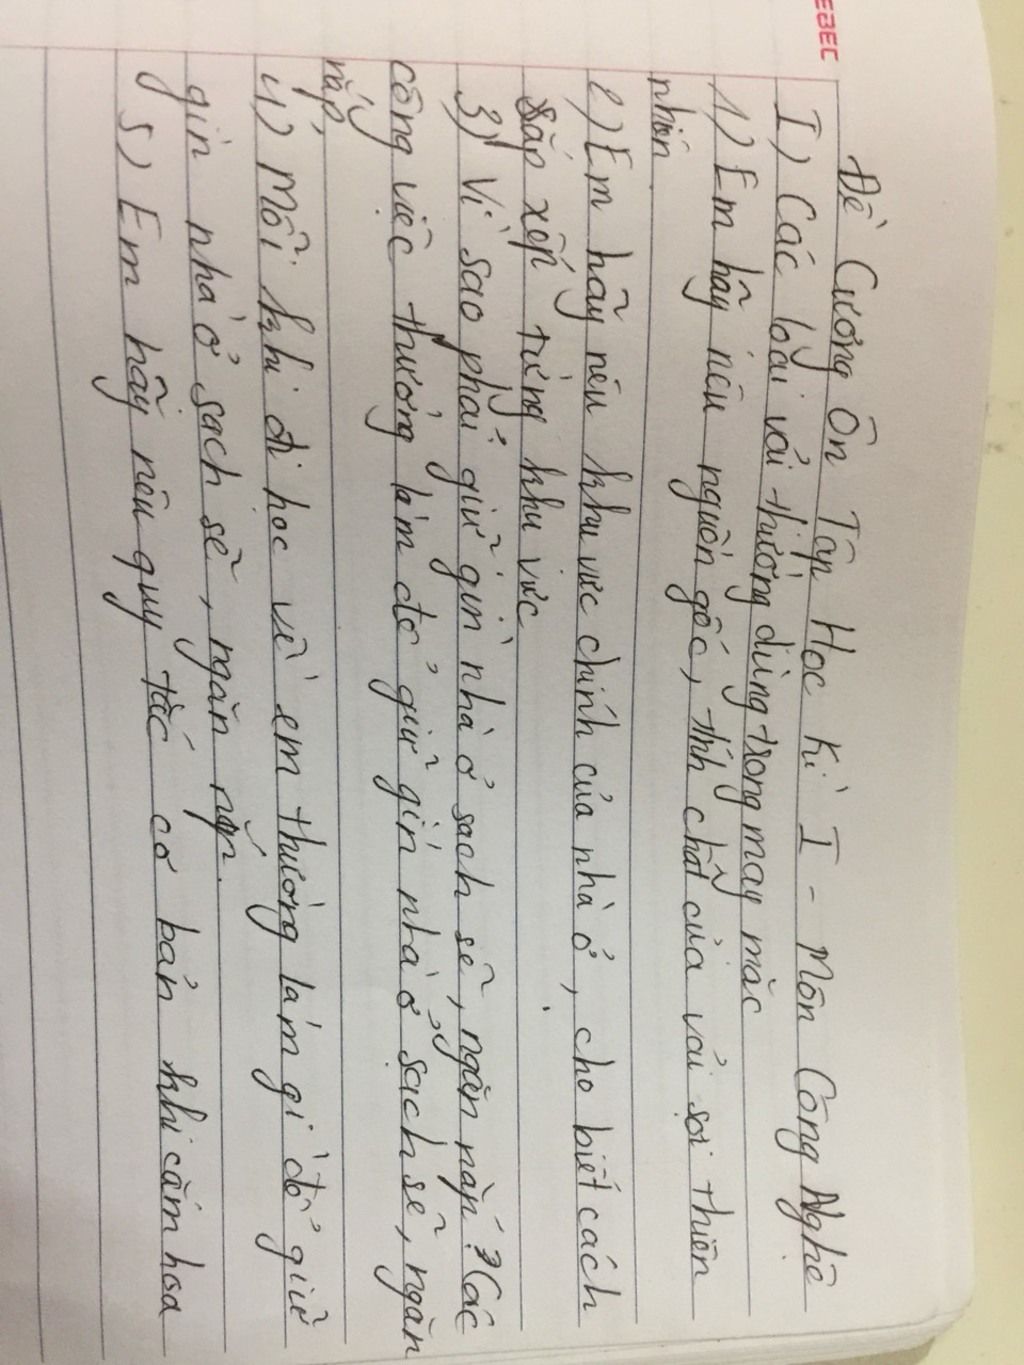 EBEC
Đề Cương Ôn Tập Học Kì I - Môn Công Nghệ
I) Các loại vải thường dùng trong may mặc
1) Em hãy nêu nguồn gốc, tính chất của vải sợi thiên
nhiên
2) Em hãy nêu khu vực chính của nhà ở, cho biết cách
sắp xếp từng khu vực
3) Vì sao phải giữ gìn nhà ở sạch sẽ, ngăn nắp? Các
công việc thường làm để giữ gìn nhà ở sạch sẽ, ngăn
nắp
4) Mỗi khi đi học về em thường làm gì để giữ
gìn nhà ở sạch sẽ, ngăn nắp.
5) Em hãy nêu quy tắc cơ bản khi cắm hoa